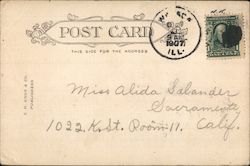 POST CARD
THIS SIDE FOR THE ADDRESS
1907
ILL.
Miss Alida Solander
Sacramento
1022. K. St. Room 11. Calif.
PUBLISHERS